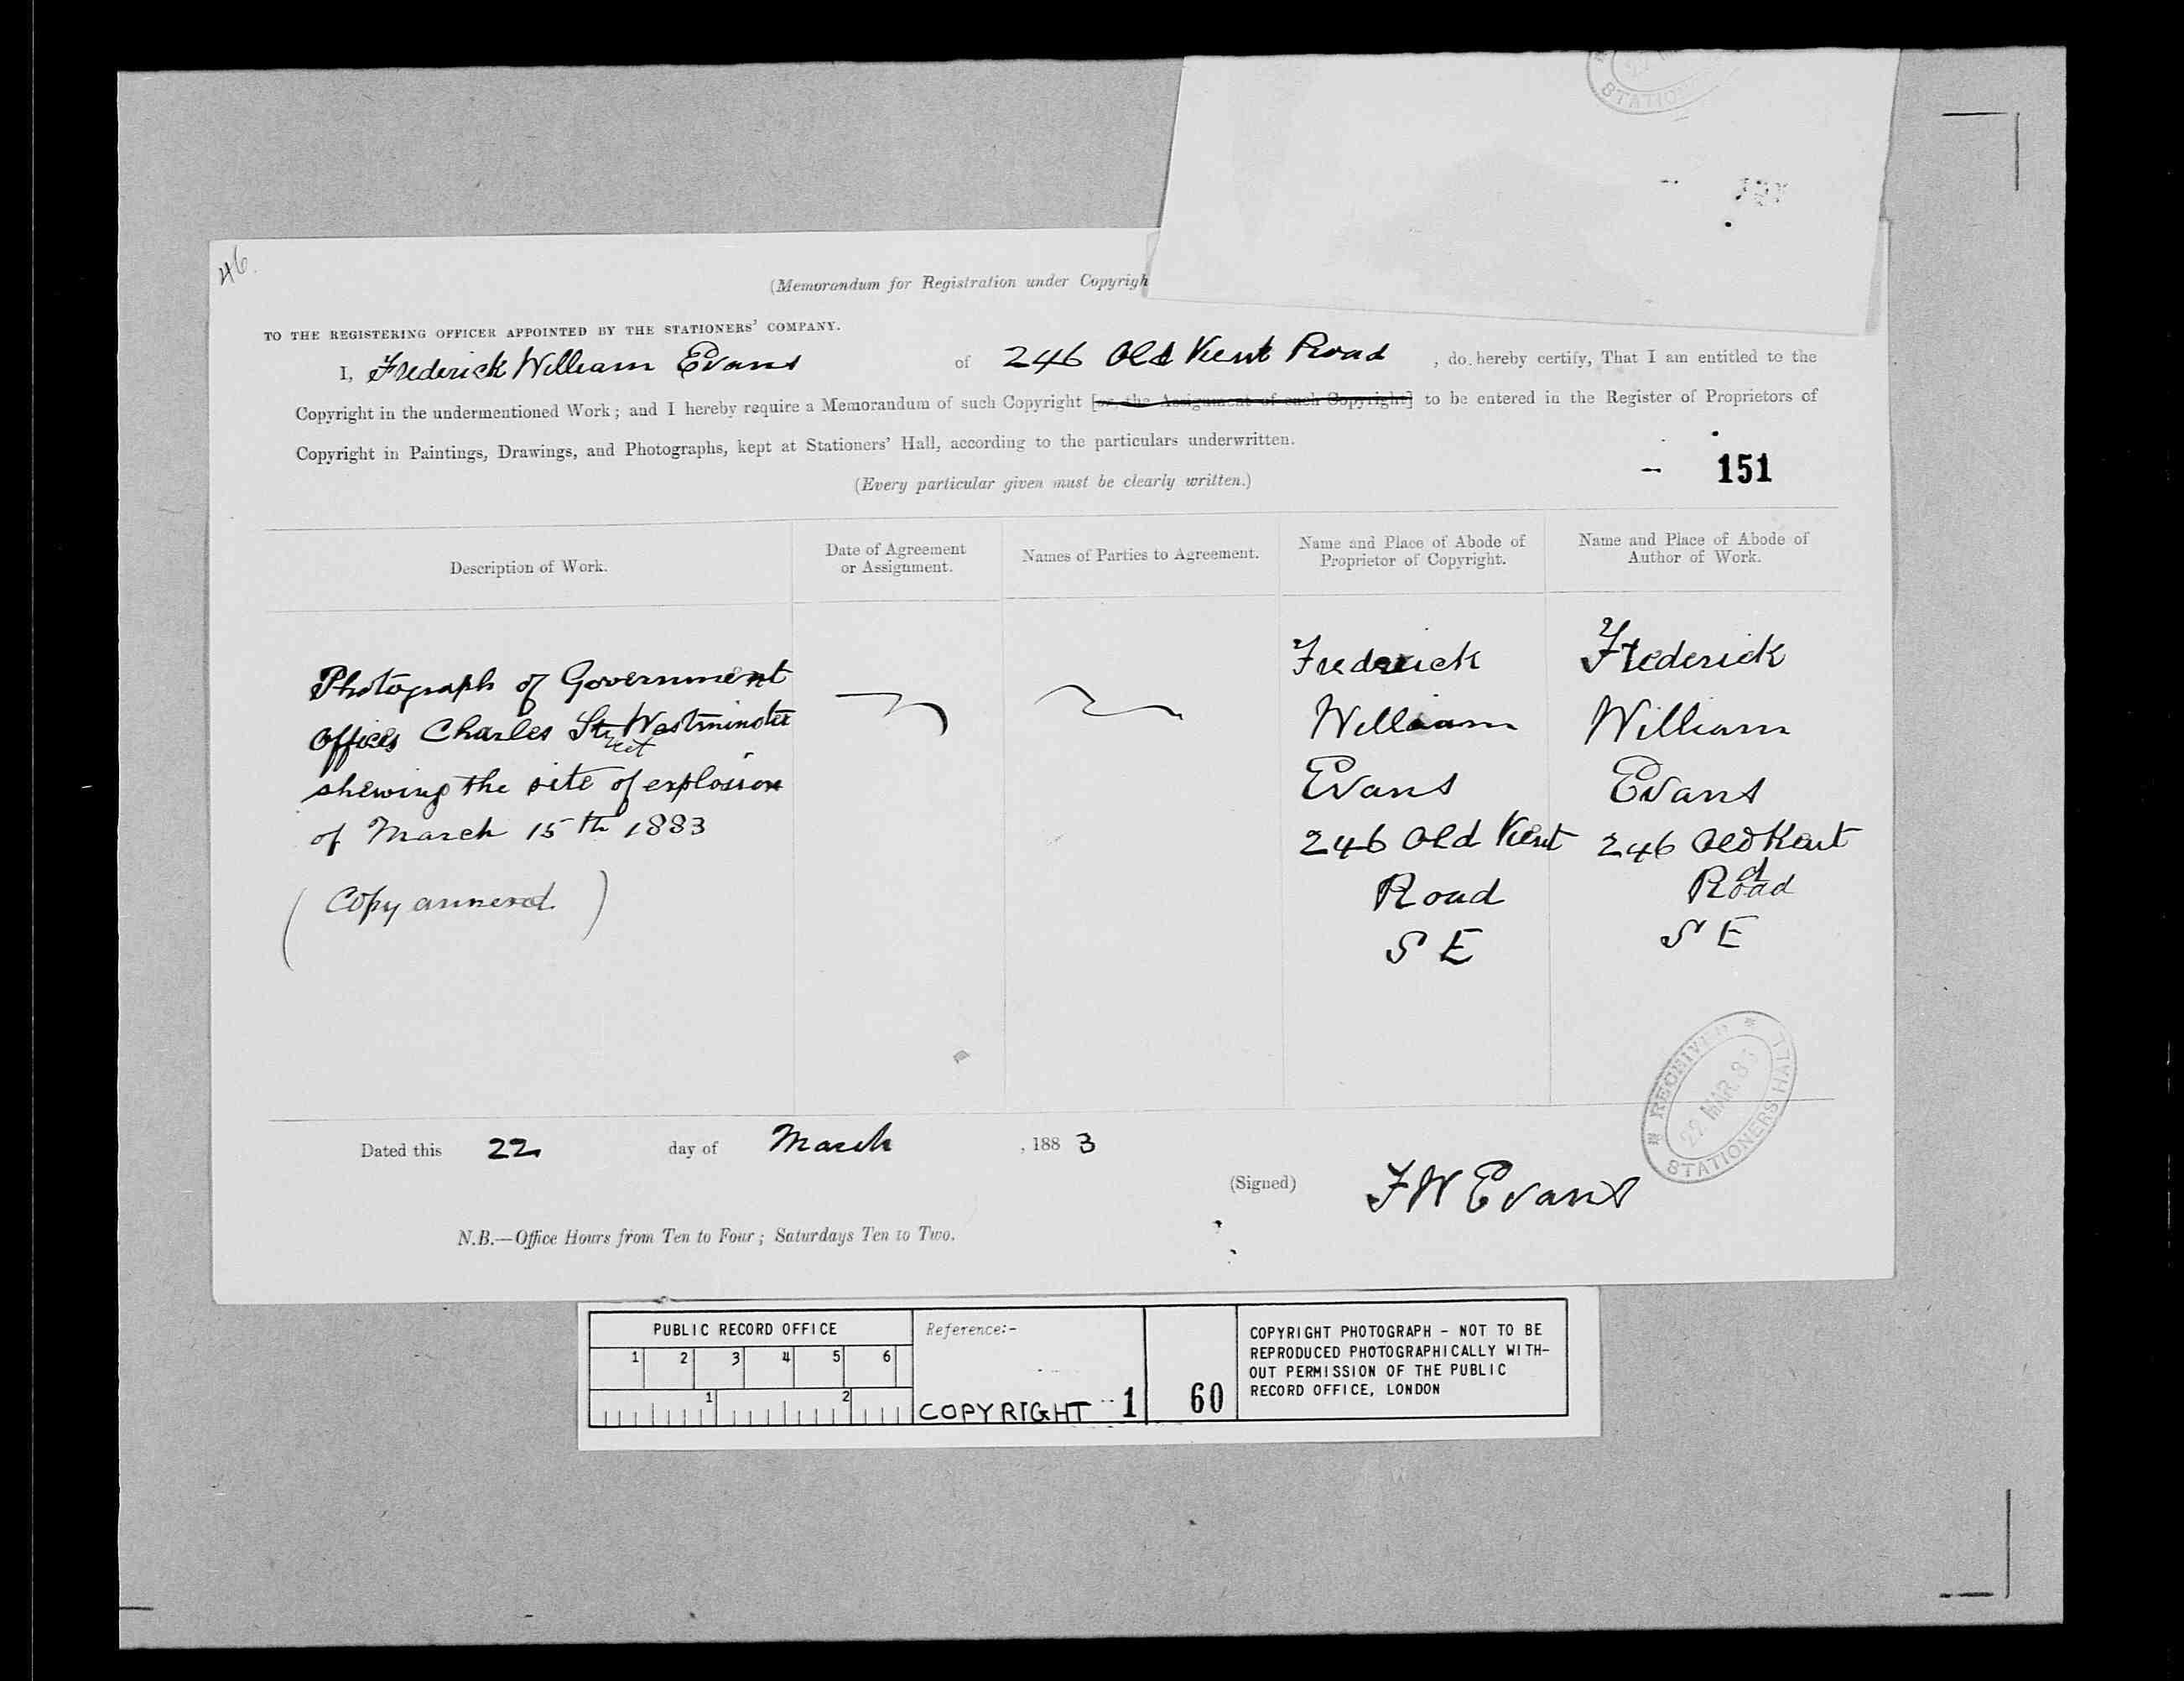 STATIO
46.
(Memorandum for Registration under Copyrigh
TO THE REGISTERING OFFICER APPOINTED BY THE STATIONERS' COMPANY.
I, Frederick William Evans of 246 Old Kent Road , do hereby certify, That I am entitled to the
Copyright in the undermentioned Work; and I hereby require a Memorandum of such Copyright [or, the Assignment of such Copyright] to be entered in the Register of Proprietors of
Copyright in Paintings, Drawings, and Photographs, kept at Stationers' Hall, according to the particulars underwritten.
151
(Every particular given must be clearly written.)
Description of Work.
Date of Agreement
or Assignment.
Names of Parties to Agreement.
Name and Place of Abode of
Proprietor of Copyright.
Name and Place of Abode of
Author of Work.
Photograph of Government
Offices Charles Street Westminster
shewing the site of explosion
of March 15th 1883
(Copy annexed)
Frederick
William
Evans
246 Old Kent
Road
S E
Frederick
William
Evans
246 Old Kent
Road
S E
RECEIVED
22 MAR. 83
STATIONERS HALL
Dated this 22 day of March , 188 3
(Signed) F W Evans
N.B.—Office Hours from Ten to Four; Saturdays Ten to Two.
PUBLIC RECORD OFFICE
1 2 3 4 5 6
1 2
Reference:-
COPYRIGHT 1
60
COPYRIGHT PHOTOGRAPH - NOT TO BE
REPRODUCED PHOTOGRAPHICALLY WITH-
OUT PERMISSION OF THE PUBLIC
RECORD OFFICE, LONDON